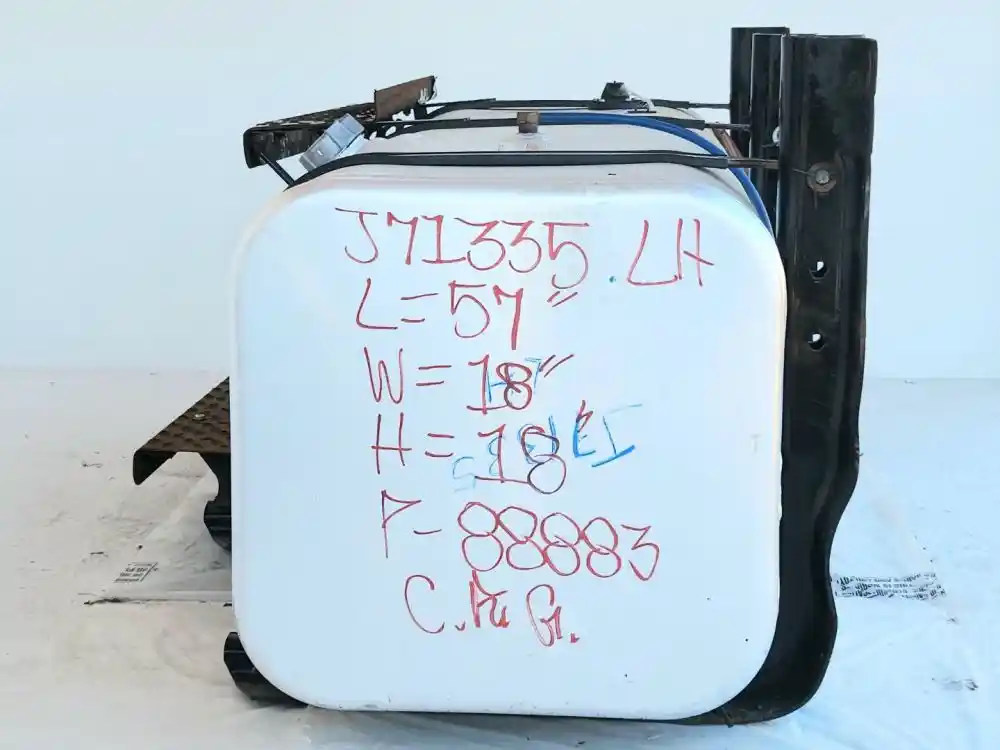 J71335 . LH
L = 57"
W = 18"
H = 18"
P - 88883